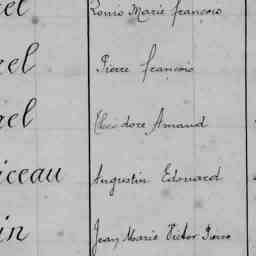 el Louis Marie françois
el Pierre françois
el Théodore Amand
iceau Augustin Edouard
in Jean Marie Victor Pierre